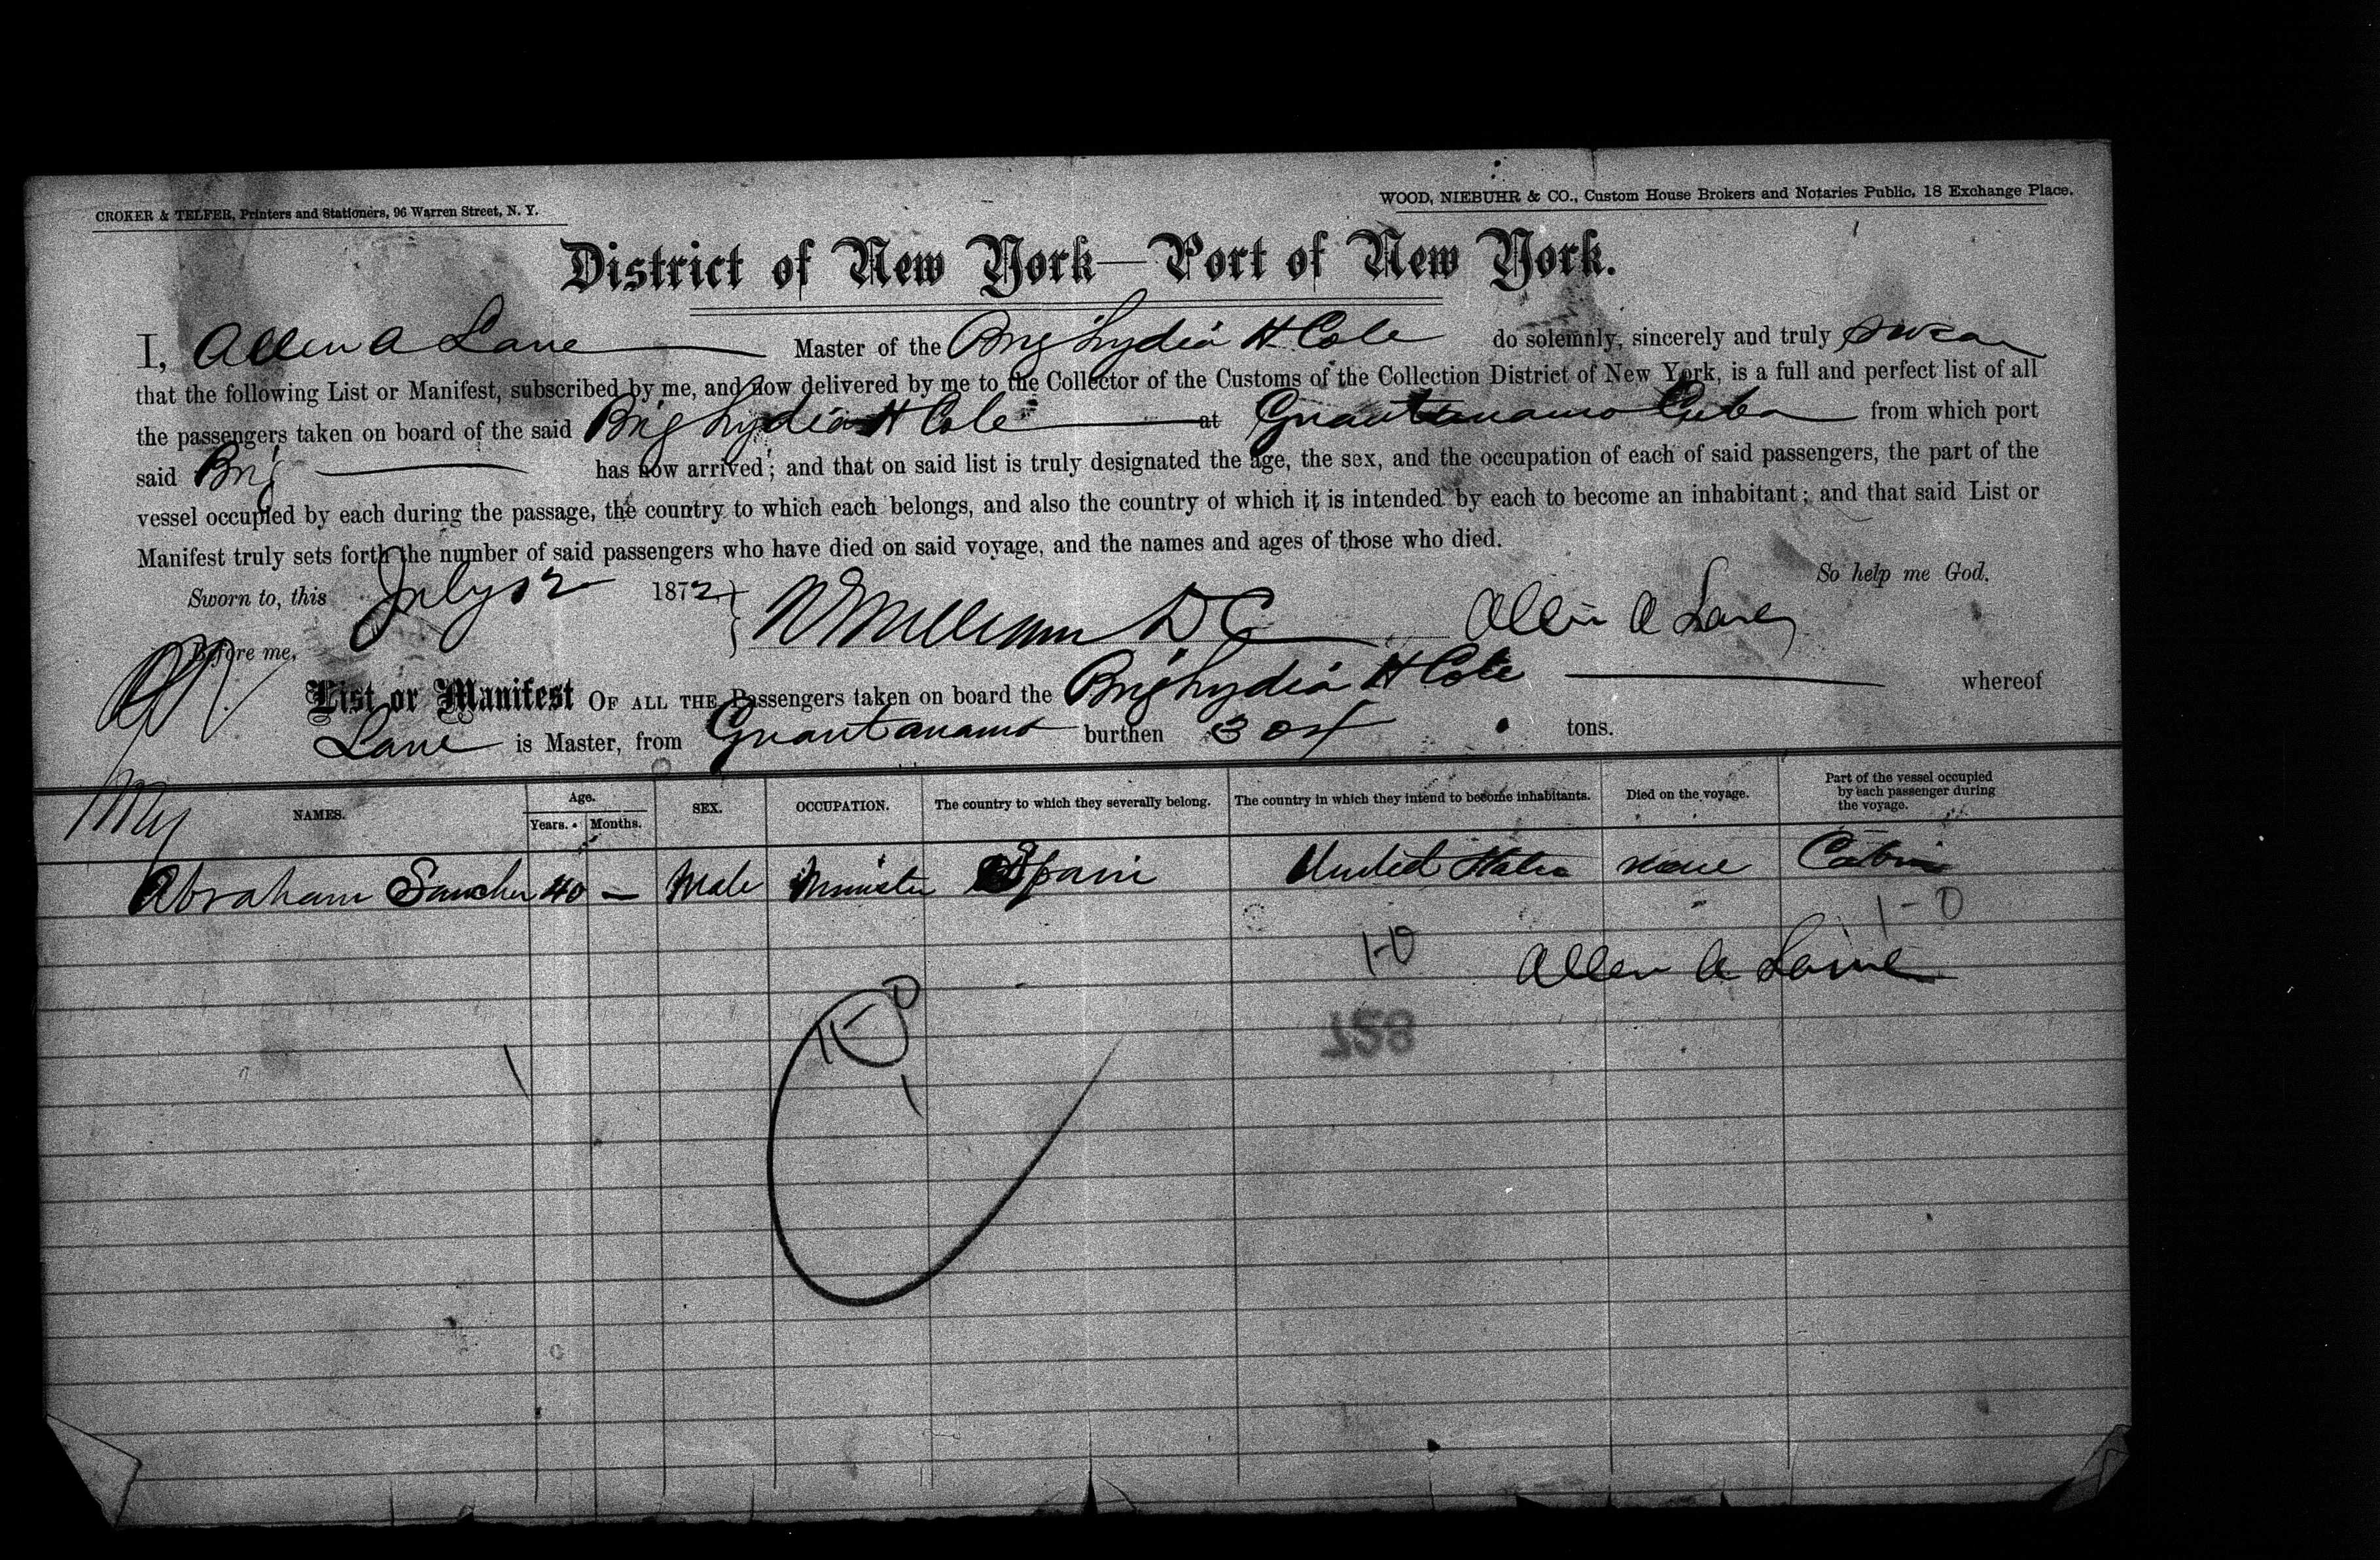 CROKER & TELFER, Printers and Stationers, 96 Warren Street, N. Y.
WOOD, NIEBUHR & CO., Custom House Brokers and Notaries Public, 18 Exchange Place.
District of New York—Port of New York.
I, Allen A Lane Master of the Brig Lydia H Cole do solemnly, sincerely and truly swear
that the following List or Manifest, subscribed by me, and now delivered by me to the Collector of the Customs of the Collection District of New York, is a full and perfect list of all
the passengers taken on board of the said Brig Lydia H Cole at Guantanamo Cuba from which port
said Brig has now arrived; and that on said list is truly designated the age, the sex, and the occupation of each of said passengers, the part of the
vessel occupied by each during the passage, the country to which each belongs, and also the country of which it is intended by each to become an inhabitant; and that said List or
Manifest truly sets forth the number of said passengers who have died on said voyage, and the names and ages of those who died.
So help me God.
Sworn to, this July 12 1872 } Allen A Lane
Before me,
List or Manifest OF ALL THE Passengers taken on board the Brig Lydia H Cole whereof
Lane is Master, from Guantanamo burthen tons.
NAMES. Age. Years. Months. SEX. OCCUPATION. The country to which they severally belong. The country in which they intend to become inhabitants. Died on the voyage. Part of the vessel occupied by each passenger during the voyage.
Abraham Sanchez 40 — Male Minister Spain United States none Cabin
1-0
1-0
Allen A Lane
1-0